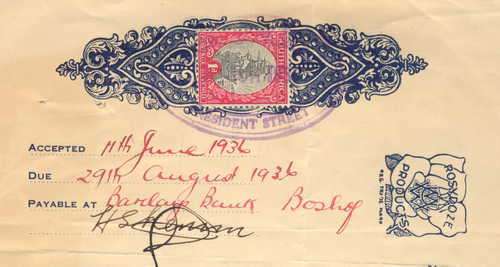 SOUTH AFRICA
1D
PRESIDENT STREET
ACCEPTED 11th June 1936
DUE 29th August 1936
PAYABLE AT Barclays Bank Boshof
POSNDOZE
PRODUCTS
REG. TRADE MARK